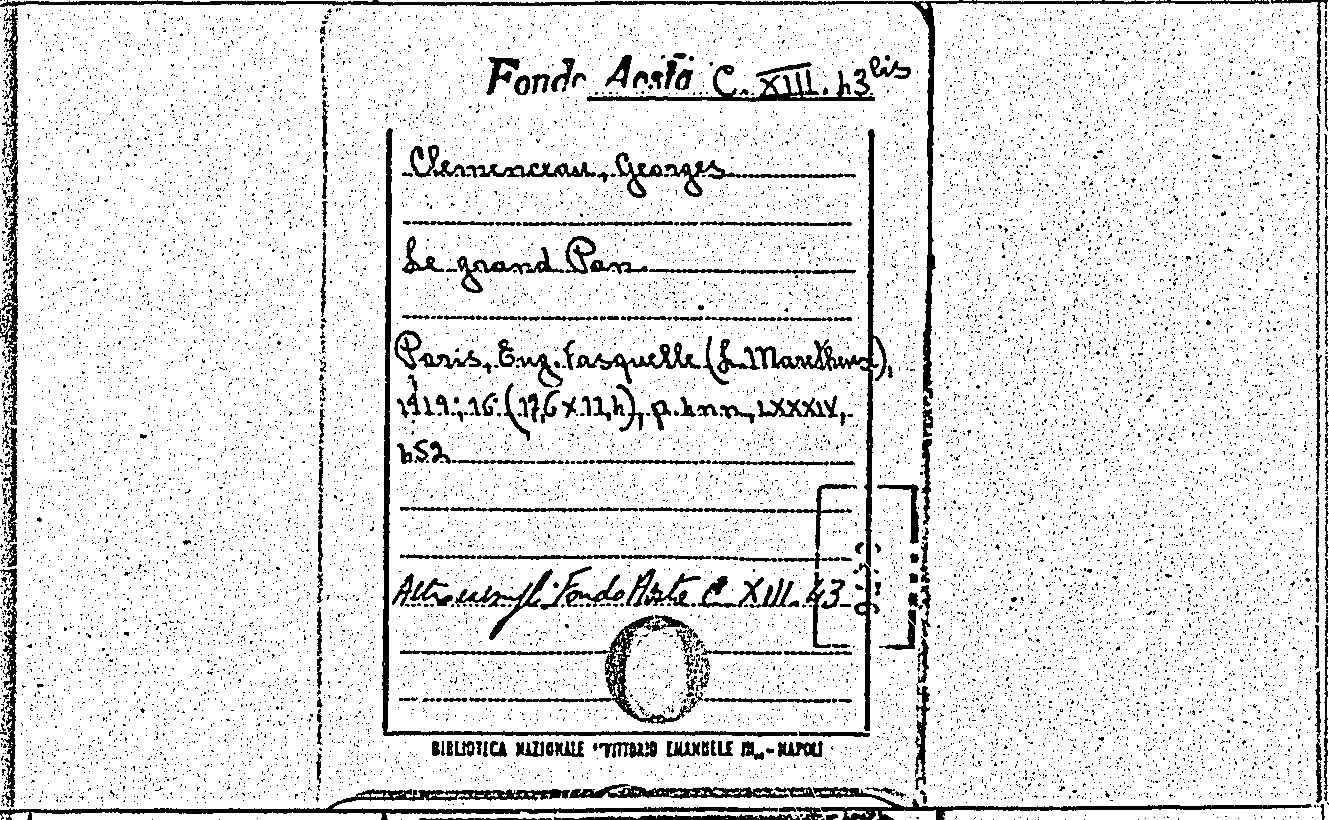 Fondo Aosta C. XIII. 43 bis
Clemenceau, Georges
Le grand Pan
Paris, Eug. Fasquelle (L. Maretheux),
1919; 16° (17,6 x 11,4), p. 4nn, LXXXIV,
452
Altro esempl. Fondo Aosta C. XIII. 43
BIBLIOTECA NAZIONALE "VITTORIO EMANUELE III" - NAPOLI